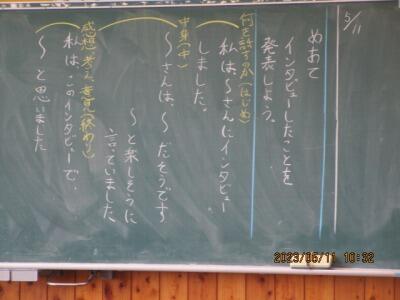 5/11
めあて
インタビューしたことを
発表しよう。
何を話すのか(はじめ)
私は、〜さんにインタビュー
しました。
中身(中)
〜さんは、〜だそうです
〜と楽しそうに
言っていました
感想、考え、意見(終わり)
私は、このインタビューで、
〜と思いました
2023/05/11 10:32